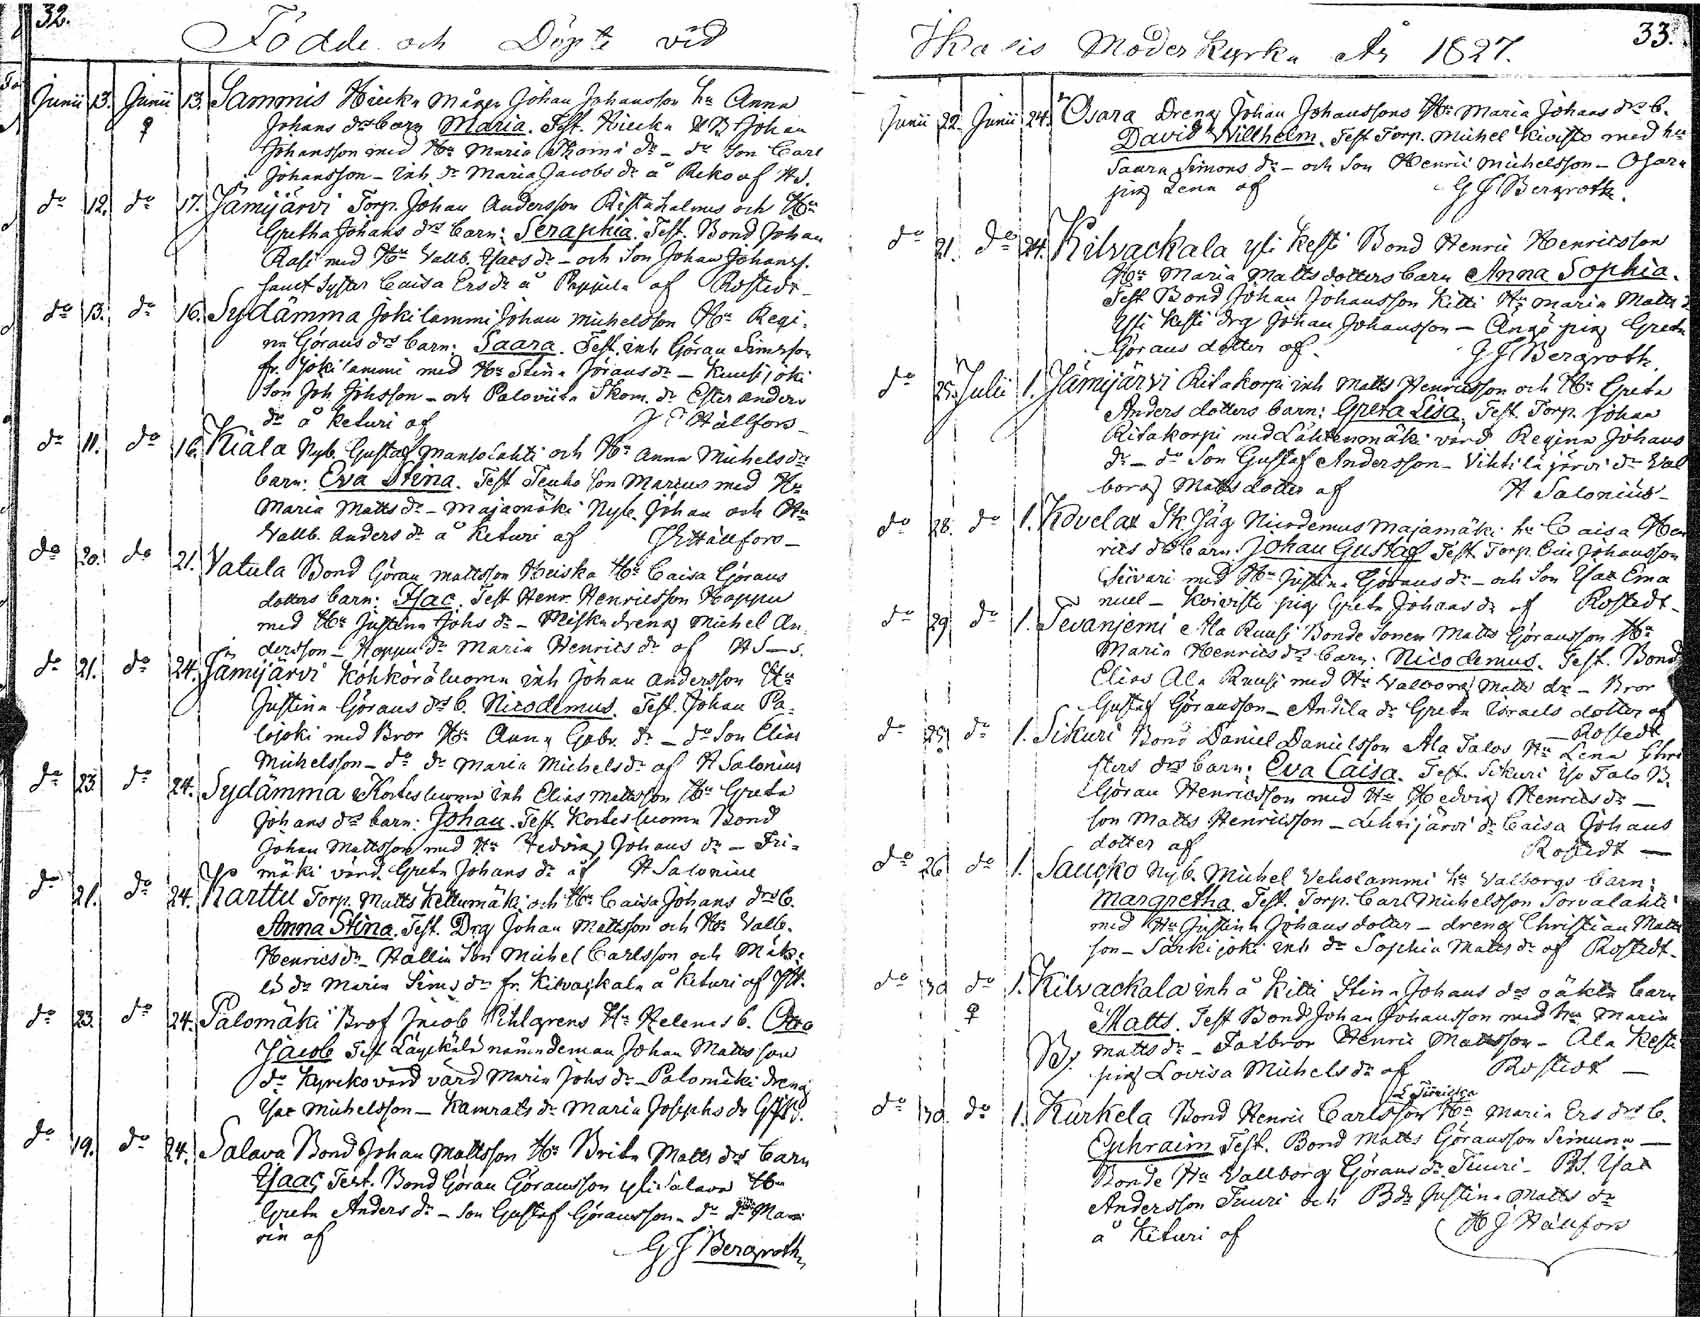 32.
Födde och Döpte vid
Junii 13. Junii 13. Sammis Hiecka mågen Johan Johansson hu Anna
Johans drs barn Maria. Test. Hiecka Johan
Johansson med Hu Maria Thomæ dr - do Son Carl
Johansson - inh dr Maria Jacobs dr å Reko af HS.
do 12. do 17. Jämijärvi Torp. Johan Andersson Ristahalmes och Hu
Gretha Johans drs barn: Seraphia. Test. Bond Johan
Rasi med Hu Vallb. Isacs dr - och Son Johan Johanss.
samt Syster Caisa Ers dr å af Rostedt -
do 13. do 16. Sydämma Jokilammi Johan Michelsson Hu Regi-
na Görans drs barn: Saara. Test. inh Göran Simsson
fr. Jokilammi med Hu Stina Jörans dr - Kuusijoki
Son Joh Johsson - och Paloviita Skom. dr Ester Anders
dr å Keturi af Hällfors -
do 11. do 16. Kiala Nyb. Gustaf Mansolahti och Hu Anna Michels drs
barn: Eva Stina. Test Teuho Son Marcus med Hu
Maria Matts dr - Majamäki Nyb. Johan och Hu
Vallb. Anders dr å Keturi af Hällfors -
do 20. do 21. Vatula Bond Göran Mattsson Heiska Hu Caisa Görans
dotters barn: Isac. Test Henr. Henricsson Hoppu
med Hu Justina Johs dr - Heiska dreng Michel An-
dersson - Hoppu dr Maria Henrics dr af HS - s.
do 21. do 24. Jämijärvi Kohköräluoma inh Johan Andersson Hu
Justina Görans drs b. Nicodemus. Test. Johan Pa-
lojoki med Bror Hu Anna Gabr. dr - do Son Elias
Michelsson - do dr Maria Michels dr af H Salonius
do 23. do 24. Sydämma Kortesluoma inh Elias Mattsson Hu Greta
Johans drs barn: Johan. Test. Kortesluoma Bond
Johan Mattsson med Hu Hedvig Johans dr - Fri-
mäki värd. Greta Johans dr af H Salonius
do 21. do 24. Karttu Torp. Matts Kettumäki och Hu Caisa Johans drs b.
Anna Stina. Test. Drg Johan Mattsson och Hu Vallb.
Henrics dr - Hallin Son Michel Carlsson och
dr Maria Sims dr fr. Kilvackala å Keturi af
do 23. do 24. Palomäki Prof Jacob Pihlgrens Hu Helenas b. Otto
Jacob Test nämndeman Johan Mattsson
do Kyrkovärd värd Maria Johs dr - Palomäki dreng
Isac Michelsson - Kamrats dr Maria Josephs dr GJB.
do 19. do 24. Salava Bond Johan Mattsson Hu Brita Matts drs barn
Isaac Test. Bond Göran Göransson yli Salava Hu
Greta Anders dr - Son Gustaf Göransson - do dr Ma-
ria af G J Bergroth
33.
Ikalis Moderkyrka År 1827.
Junii 22. Junii 24. Osara Dreng Johan Johanssons Hu Maria Johans drs b.
David Wilhelm. Test Torp. Michel Kivistö med hu
Saara Simons dr - och Son Henric Michelsson - Osara
pig Lena af G J Bergroth.
do 21. do 24. Kilvackala yli Kesti Bond Henric Henricsson
Hu Maria Mattsdotters barn Anna Sophia.
Test Bond Johan Johansson Kitti Hu Maria Matts dr
Yli Kesti drg Johan Johansson - pig Greta
Görans dotter af G J Bergroth.
do 25. Julii 1. Jämijärvi Ritakorpi inh Matts Henricsson och Hu Greta
Anders dotters barn: Greta Lisa, Test. Torp. Johan
Ritakorpi med Lähtenmäki värd Regina Johans
dr - do Son Gustaf Andersson - Vihtiläjärvi dr Val
borg Matts dotter af H Salonius -
do 28. do 1. Kovelax Sk Jäg Nicodemus Majamäki hu Caisa Hen
rics drs barn Johan Gustaf Test. Torp. Johansson
Siivari med Hu Justina Görans dr - och Son Isac Ema
nuel - Koivisto pig Greta Johans dr af Rostedt -
do 29 do 1. Tevanjemi Ala Ruusi Bonde Sonen Matts Göransson Hu
Maria Henrics drs barn: Nicodemus. Test. Bond
Elias Ala Ruusi med Hu Valborg Matts dr - Bror
Gustaf Göransson - Andila dr Greta Israels dotter af
- Rostedt
do 25. do 1. Sikuri Bond Daniel Danielsson Ala Talos Hu Lena Chri
sters drs barn: Eva Caisa. Test. Sikuri Iso Talo B.
Göran Henricsson med Hu Hedvig Henrics dr -
Son Matts Henricsson - Lehtijärvi dr Caisa Johans
dotter af Rostedt -
do 26 do 1. Saucko Nyb. Michel Vehslammi hu Valborgs barn:
Margretha. Test. Torp. Carl Michelsson Sorvalahti
med Hu Justina Johans dotter - dreng Christian Matts
son - Särkijoki inh dr Sophia Matts dr af Rostedt -
do 30 do 1. Kilvackala inh å Kitti Stina Johans drs oäkta barn
Matts. Test Bond Johan Johansson med hu Maria
Matts dr - Farbror Henric Mattsson - Ala Kesti
pig Lovisa Michels dr af Rostedt -
do 30. do 1. Kurkela Bond Henric Carlsson Hu Maria Ers drs b.
Ephraim Test. Bond Matts Göransson Simuna -
Bonde Hu Vallborg Görans dr Tuuri - BS. Isac
Andersson Tuuri och B dr Justina Matts dr
å Keturi af H J Hällfors